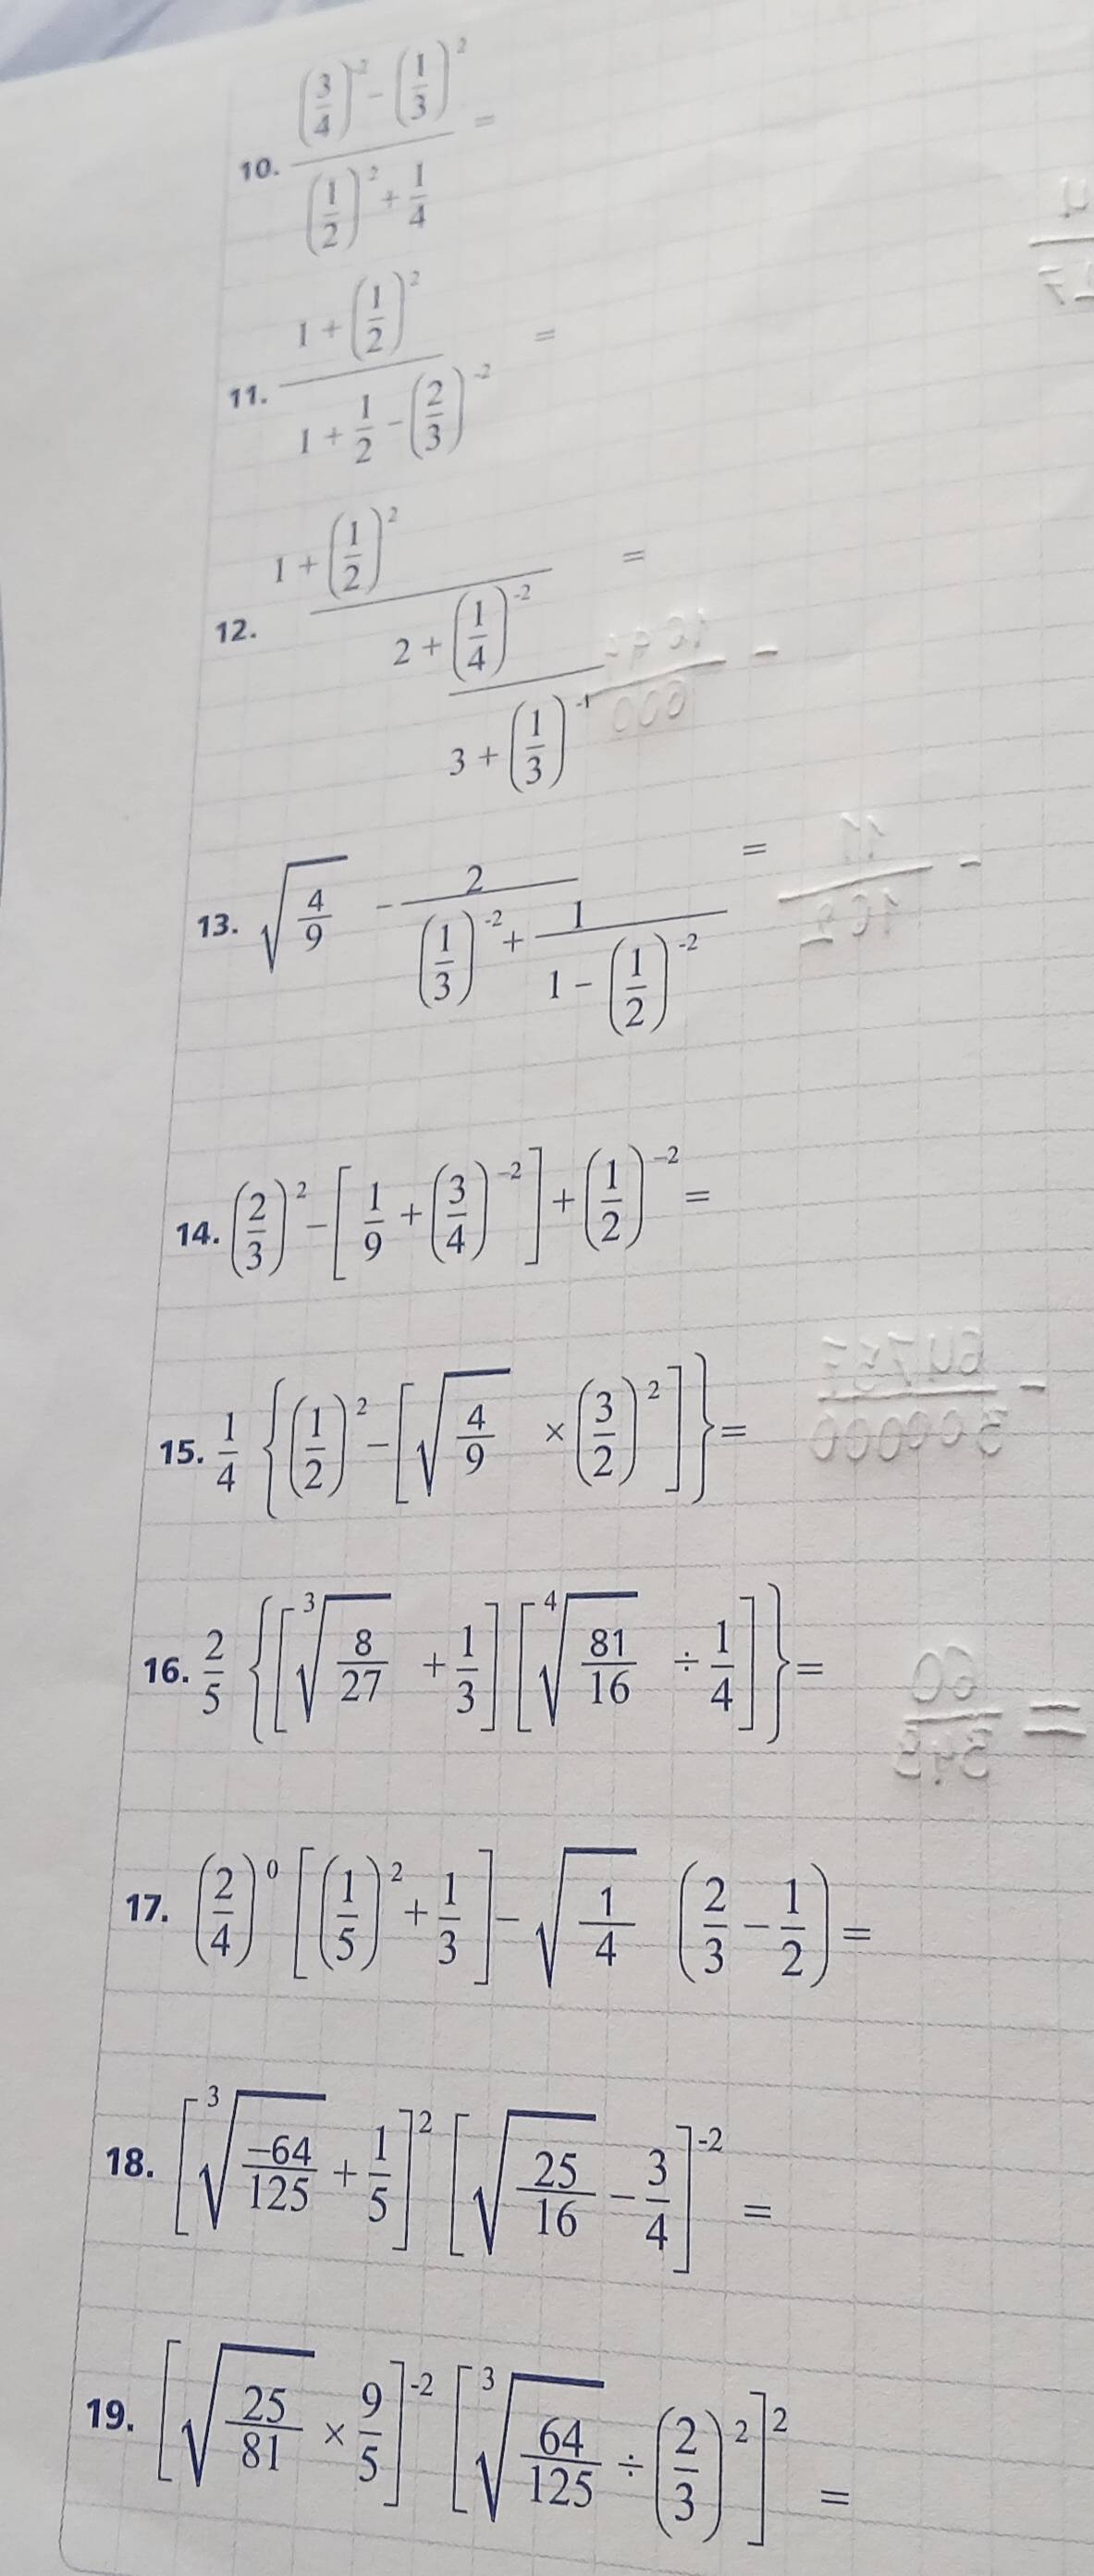 10. \frac{\left(\frac{3}{4}\right)^{-2} - \left(\frac{1}{3}\right)^{2}}{\left(\frac{1}{2}\right)^{2} + \frac{1}{4}} =
11. \frac{1 + \left(\frac{1}{2}\right)^{2}}{1 + \frac{1}{2} - \left(\frac{2}{3}\right)^{-2}} =
12. \frac{1 + \left(\frac{1}{2}\right)^{2}}{\frac{2 + \left(\frac{1}{4}\right)^{-2}}{3 + \left(\frac{1}{3}\right)^{-1}}} =
13. \sqrt{\frac{4}{9}} - \frac{2}{\left(\frac{1}{3}\right)^{-2} + \frac{1}{1 - \left(\frac{1}{2}\right)^{-2}}} =
14. \left(\frac{2}{3}\right)^{2} - \left[\frac{1}{9} + \left(\frac{3}{4}\right)^{-2}\right] + \left(\frac{1}{2}\right)^{-2} =
15. \frac{1}{4} \left\{\left(\frac{1}{2}\right)^{2} - \left[\sqrt{\frac{4}{9}} \times \left(\frac{3}{2}\right)^{2}\right]\right\} =
16. \frac{2}{5} \left\{\left[\sqrt[3]{\frac{8}{27}} + \frac{1}{3}\right]\left[\sqrt[4]{\frac{81}{16}} \div \frac{1}{4}\right]\right\} =
17. \left(\frac{2}{4}\right)^{0} \left[\left(\frac{1}{5}\right)^{2} + \frac{1}{3}\right] - \sqrt{\frac{1}{4}} \left(\frac{2}{3} - \frac{1}{2}\right) =
18. \left[\sqrt[3]{\frac{-64}{125}} + \frac{1}{5}\right]^{2} \left[\sqrt{\frac{25}{16}} - \frac{3}{4}\right]^{-2} =
19. \left[\sqrt{\frac{25}{81}} \times \frac{9}{5}\right]^{-2} \left[\sqrt[3]{\frac{64}{125}} \div \left(\frac{2}{3}\right)^{2}\right]^{2} =